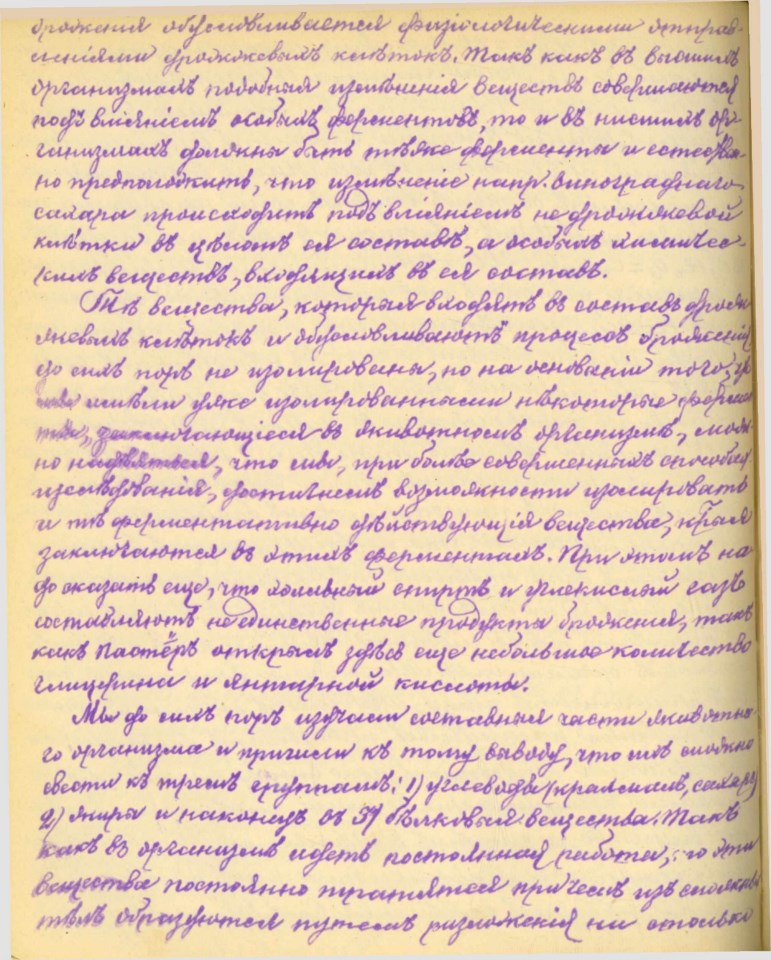 броженія обусловливается физіологическими отправ-
леніями дрожжевыхъ клѣтокъ. Такъ какъ въ высшихъ
организмахъ подобныя измѣненія веществъ совершаются
подъ вліяніемъ особыхъ ферментовъ, то и въ низшихъ ор-
ганизмахъ должны быть тѣже ферменты и естествен-
но предположить, что измѣненіе напр. винограднаго
сахара происходитъ подъ вліяніемъ не дрожжевой
клѣтки въ цѣломъ ея составѣ, а особыхъ химичес-
кихъ веществъ, входящихъ въ ея составъ.
Тѣ вещества, которыя входятъ въ составъ дрож-
жевыхъ клѣтокъ и обусловливаютъ процессъ броженія
до сихъ поръ не изолированы, но на основаніи того, что
мы имѣли уже изолированными нѣкоторые фермен
ты, заключающіеся въ животномъ организмѣ, мож-
но надѣяться, что мы, при болѣе совершенныхъ способахъ
изслѣдованія, достигнемъ возможности изолировать
и тѣ ферментативно дѣйствующія вещества, к-рыя
заключаются въ этихъ ферментахъ. При этомъ на
до сказать еще, что винный спиртъ и углекислый газъ
составляютъ не единственные продукты броженія, такъ
какъ Пастёръ открылъ здѣсь еще небольшое количество
глицерина и янтарной кислоты.
Мы до сихъ поръ изучали составныя части животна-
го организма и пришли къ тому выводу, что ихъ можно
свести къ тремъ группамъ: 1) углеводы (крахмалъ, сахаръ)
2) жиры и наконецъ въ 3) бѣлковыя вещества. Такъ
какъ въ организмѣ идетъ постоянная работа, то эти
вещества постоянно тратятся причемъ изъ сложныхъ
тѣлъ образуются путемъ разложенія не столько